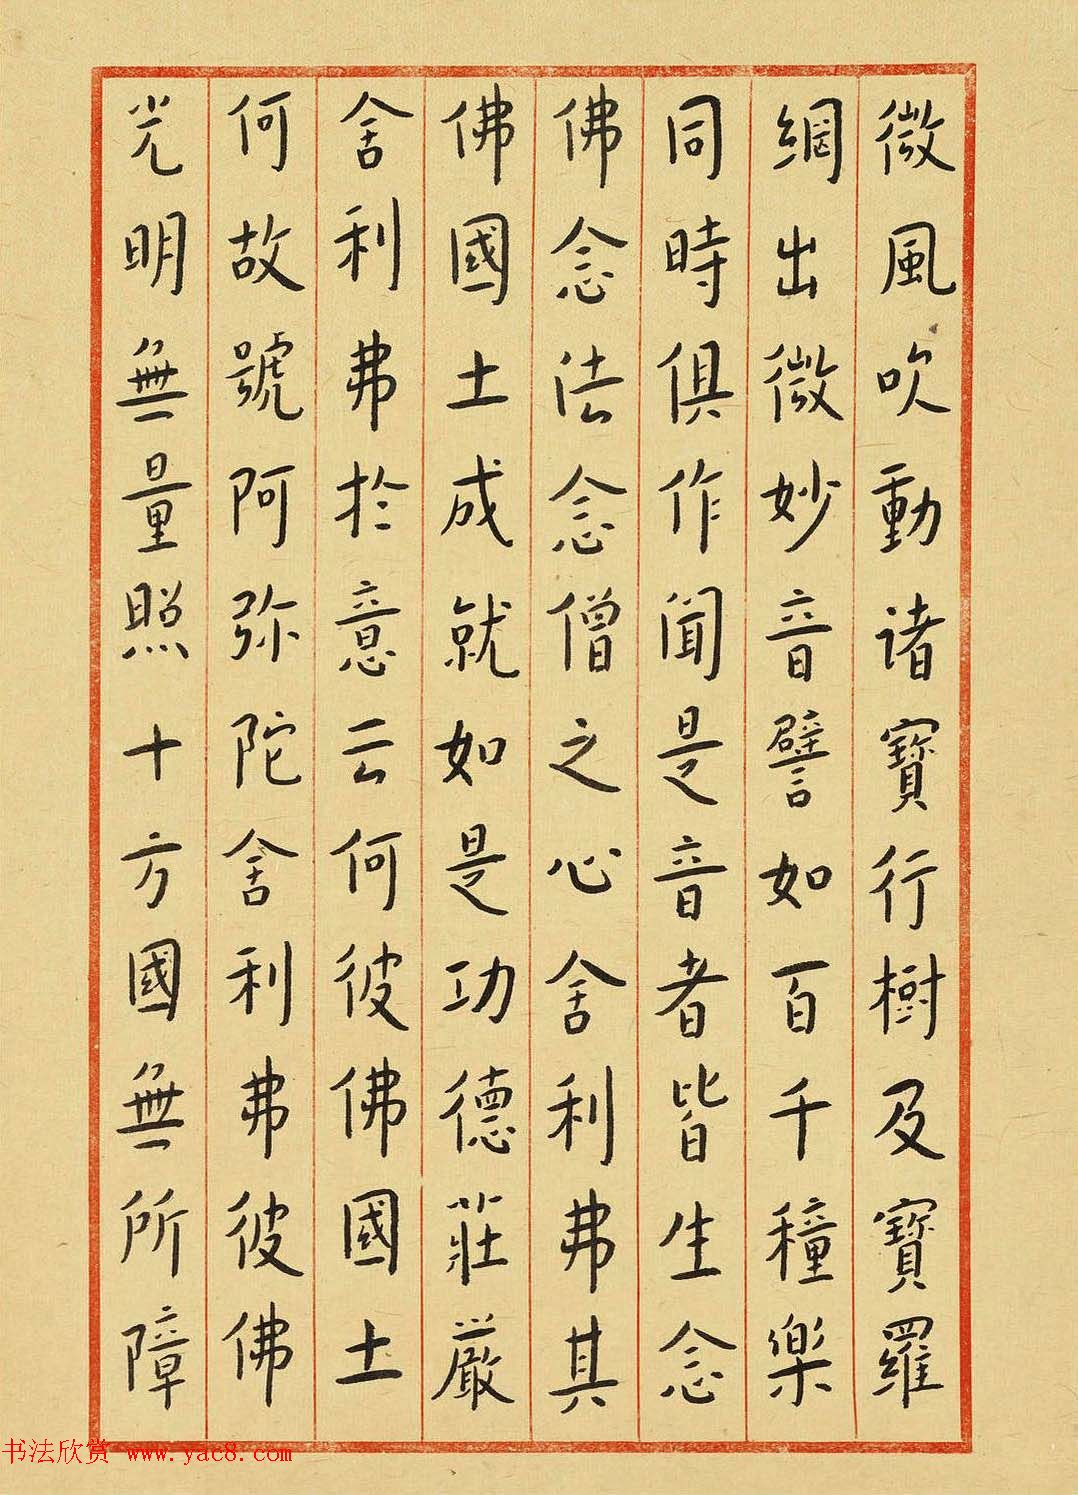 微風吹動諸寶行樹及寶羅
網出微妙音譬如百千種樂
同時俱作聞是音者皆生念
佛念法念僧之心舍利弗其
佛國土成就如是功德莊嚴
舍利弗於意云何彼佛國土
何故號阿弥陀舍利弗彼佛
光明無量照十方國無所障
书法欣赏 www.yac8.com